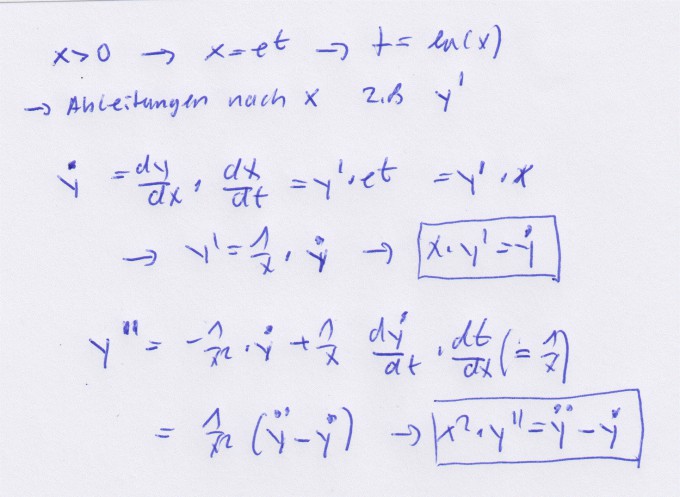 x>0 → x=eᵗ → t = ln(x)
→ Ableitungen nach x z.B y'
ẏ = dy/dx · dx/dt = y' · eᵗ = y' · x
→ y' = 1/x · ẏ → x · y' = ẏ
y'' = -1/x² · ẏ + 1/x dẏ/dt · dt/dx (= 1/x)
= 1/x² (ÿ - ẏ) → x² · y'' = ÿ - ẏ